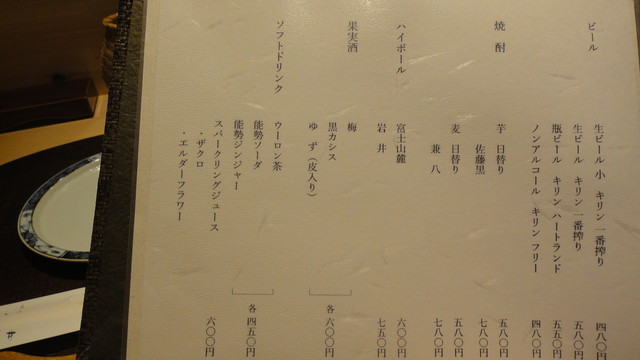 ビール
生ビール 小 キリン 一番搾り 四八〇円
生ビール キリン 一番搾り 五八〇円
瓶ビール キリン ハートランド 五五〇円
ノンアルコール キリン フリー 四八〇円
焼酎
芋 日替り 五八〇円
佐藤黒 七八〇円
麦 日替り 五八〇円
兼八 七八〇円
ハイボール
富士山麓 六〇〇円
岩井 七五〇円
果実酒
梅
黒カシス
ゆず(皮入り)
各 六〇〇円
ソフトドリンク
ウーロン茶
能勢ソーダ
能勢ジンジャー
各 四五〇円
スパークリングジュース 六〇〇円
・ザクロ
・エルダーフラワー